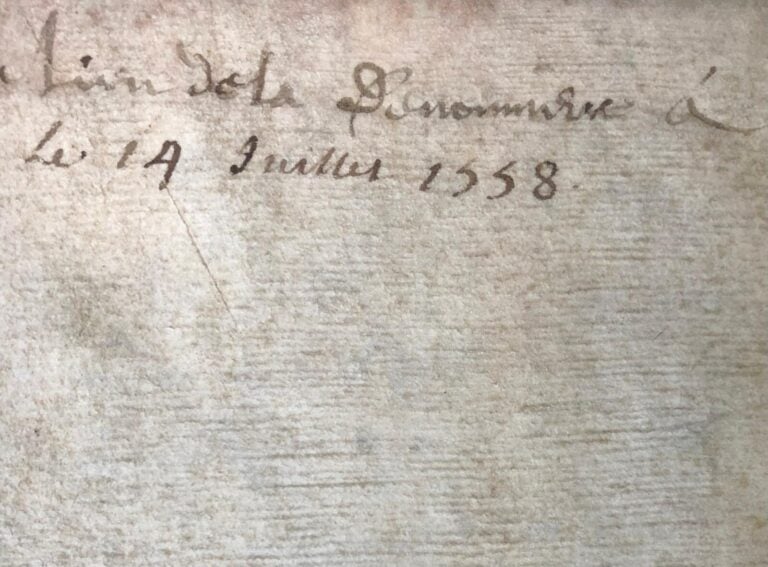 lieu de la Renommée à
Le 14 Juillet 1558.